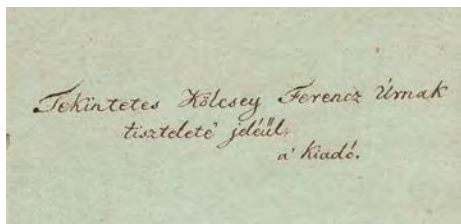 Tekintetes Kölcsey Ferencz Úrnak
tisztelete' jeléűl.
a' Kiadó.